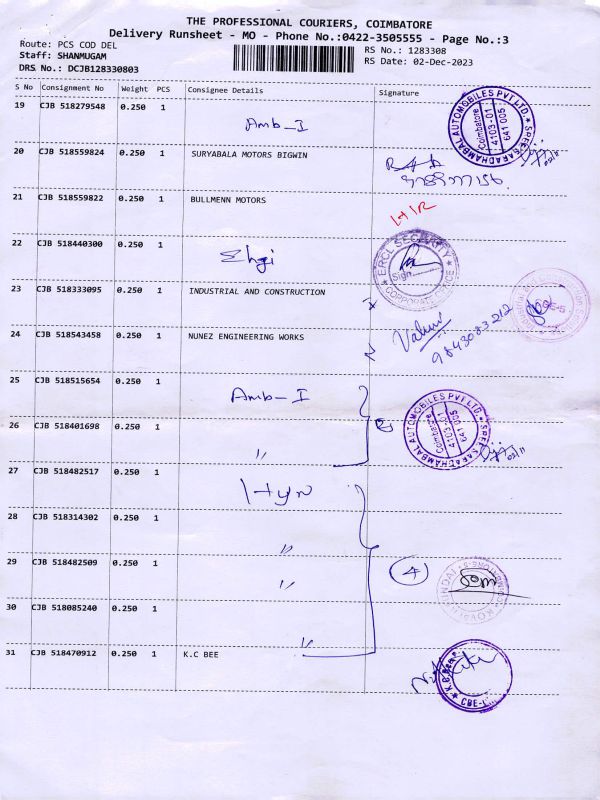 THE PROFESSIONAL COURIERS, COIMBATORE
Delivery Runsheet - MO - Phone No.:0422-3505555 - Page No.:3
Route: PCS COD DEL
RS No.: 1283308
Staff: SHANMUGAM
RS Date: 02-Dec-2023
DRS No.: DCJB128330803
S No Consignment No Weight PCS Consignee Details Signature
19 CJB 518279548 0.250 1 Amb-I
AUTOMOBILES PVT LTD.
Coimbatore
4103-01
641 005
20 CJB 518559824 0.250 1 SURYABALA MOTORS BIGWIN
21 CJB 518559822 0.250 1 BULLMENN MOTORS
22 CJB 518440300 0.250 1
ERCL SECURITY
Sign
CORPORATE OFFICE
23 CJB 518333095 0.250 1 INDUSTRIAL AND CONSTRUCTION
24 CJB 518543458 0.250 1 NUNEZ ENGINEERING WORKS
9843083212
25 CJB 518515654 0.250 1 Amb-I
AUTOMOBILES PVT LTD.
Coimbatore
4103-01
641 005
26 CJB 518401698 0.250 1 "
27 CJB 518482517 0.250 1
28 CJB 518314302 0.250 1 "
29 CJB 518482509 0.250 1 " 4
30 CJB 518085240 0.250 1 "
31 CJB 518470912 0.250 1 K.C BEE